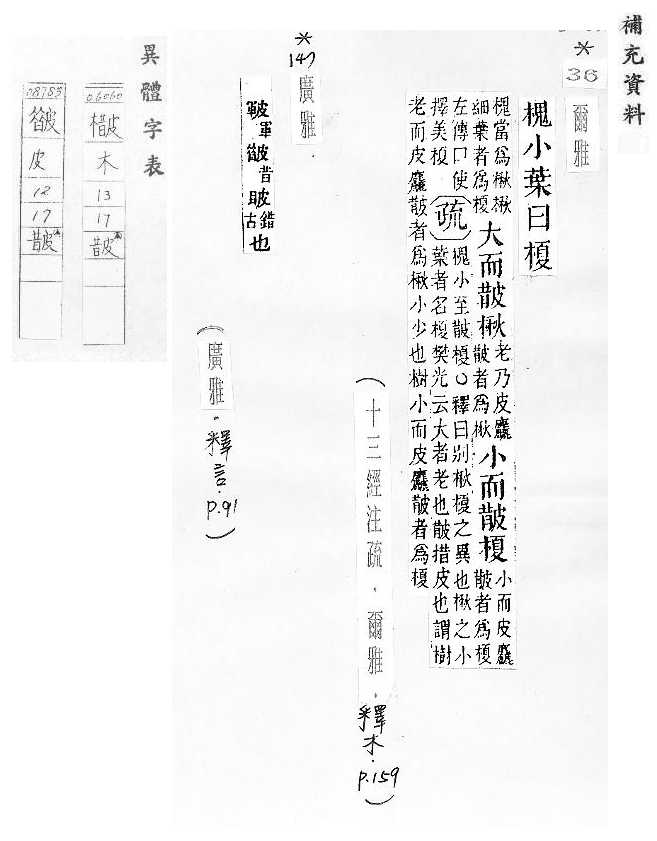 補充資料
＊
36
爾雅
槐小葉曰榎
槐當為楸楸
細葉者為榎
大而皵楸
老乃皮麤
皵者為楸
小而皵榎
小而皮麤
皵者為榎
左傳曰使
擇美榎
疏
槐小至皵榎○釋曰別楸榎之異也楸之小
葉者名榎樊光云大者老也皵措皮也謂樹
老而皮麤皵者為楸小少也樹小而皮麤皵者為榎
（十三經注疏．爾雅．釋木．p.159）
＊
147
廣雅
皸軍昔錯也
（廣雅．釋言．p.91）
異體字表
06060
木
13
17
皵
08783
皮
12
17
皵